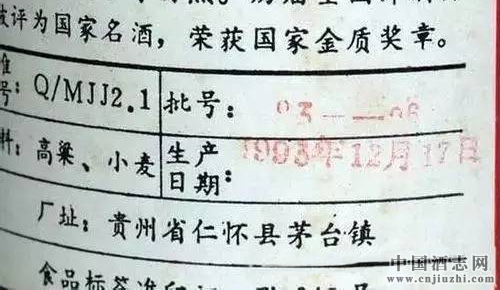 被评为国家名酒，荣获国家金质奖章。
准号：Q/MJJ2.1 批号：93——06
料：高粱、小麦 生产日期：1993年12月17日
厂址：贵州省仁怀县茅台镇
食品标签准印
中国酒志网
www.cnjiuzhi.com